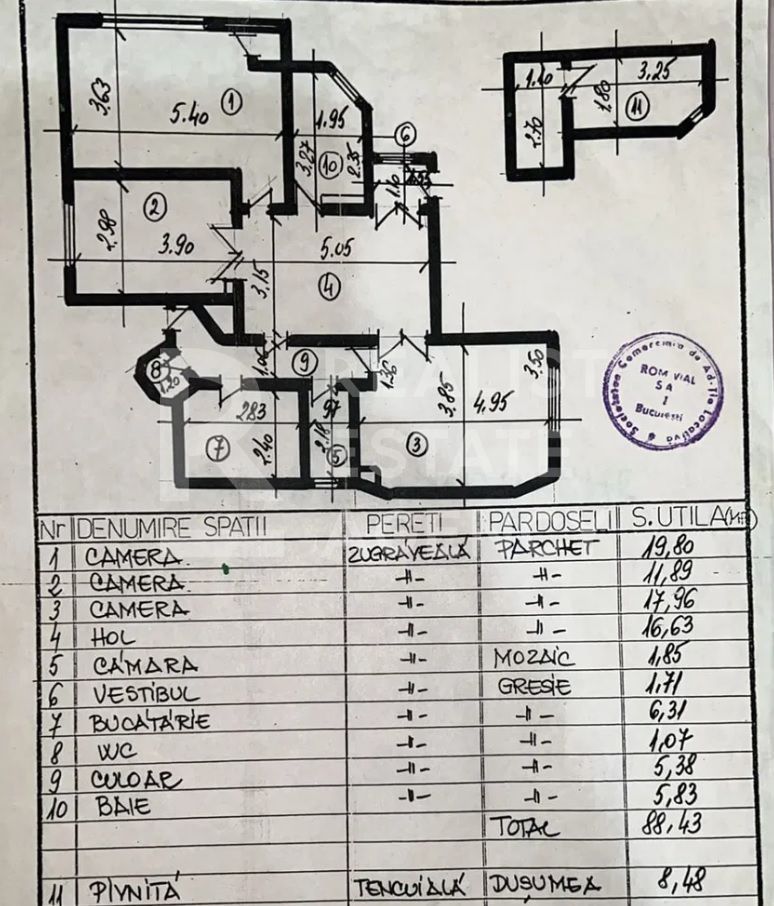 3.63
5.40
1
1.95
3.27
2.35
10
6
1.10
1.55
1.10
2.70
3.25
1.80
11
2
2.98
3.90
5.05
3.15
4
8
1.20
9
1.36
3.85
4.95
3.50
3
283
2.40
7
97
2.18
5
Societatea Comercială de Ad-tie Locativă
ROM VIAL
SA
1
București
REALIST
ESTATE
Nr DENUMIRE SPATII PERETI PARDOSELI S. UTILA(M²)
1 CAMERA ZUGRĂVEALĂ PARCHET 19,80
2 CAMERA -//- -//- 11,89
3 CAMERA -//- -//- 17,96
4 HOL -//- -//- 16,63
5 CĂMARA -//- MOZAIC 1,85
6 VESTIBUL -//- GRESIE 1,71
7 BUCĂTĂRIE -//- -//- 6,31
8 WC -//- -//- 1,07
9 CULOAR -//- -//- 5,38
10 BAIE -//- -//- 5,83
TOTAL 88,43
11 PIVNIȚĂ TENCUIALĂ DUȘUMEA 8,48